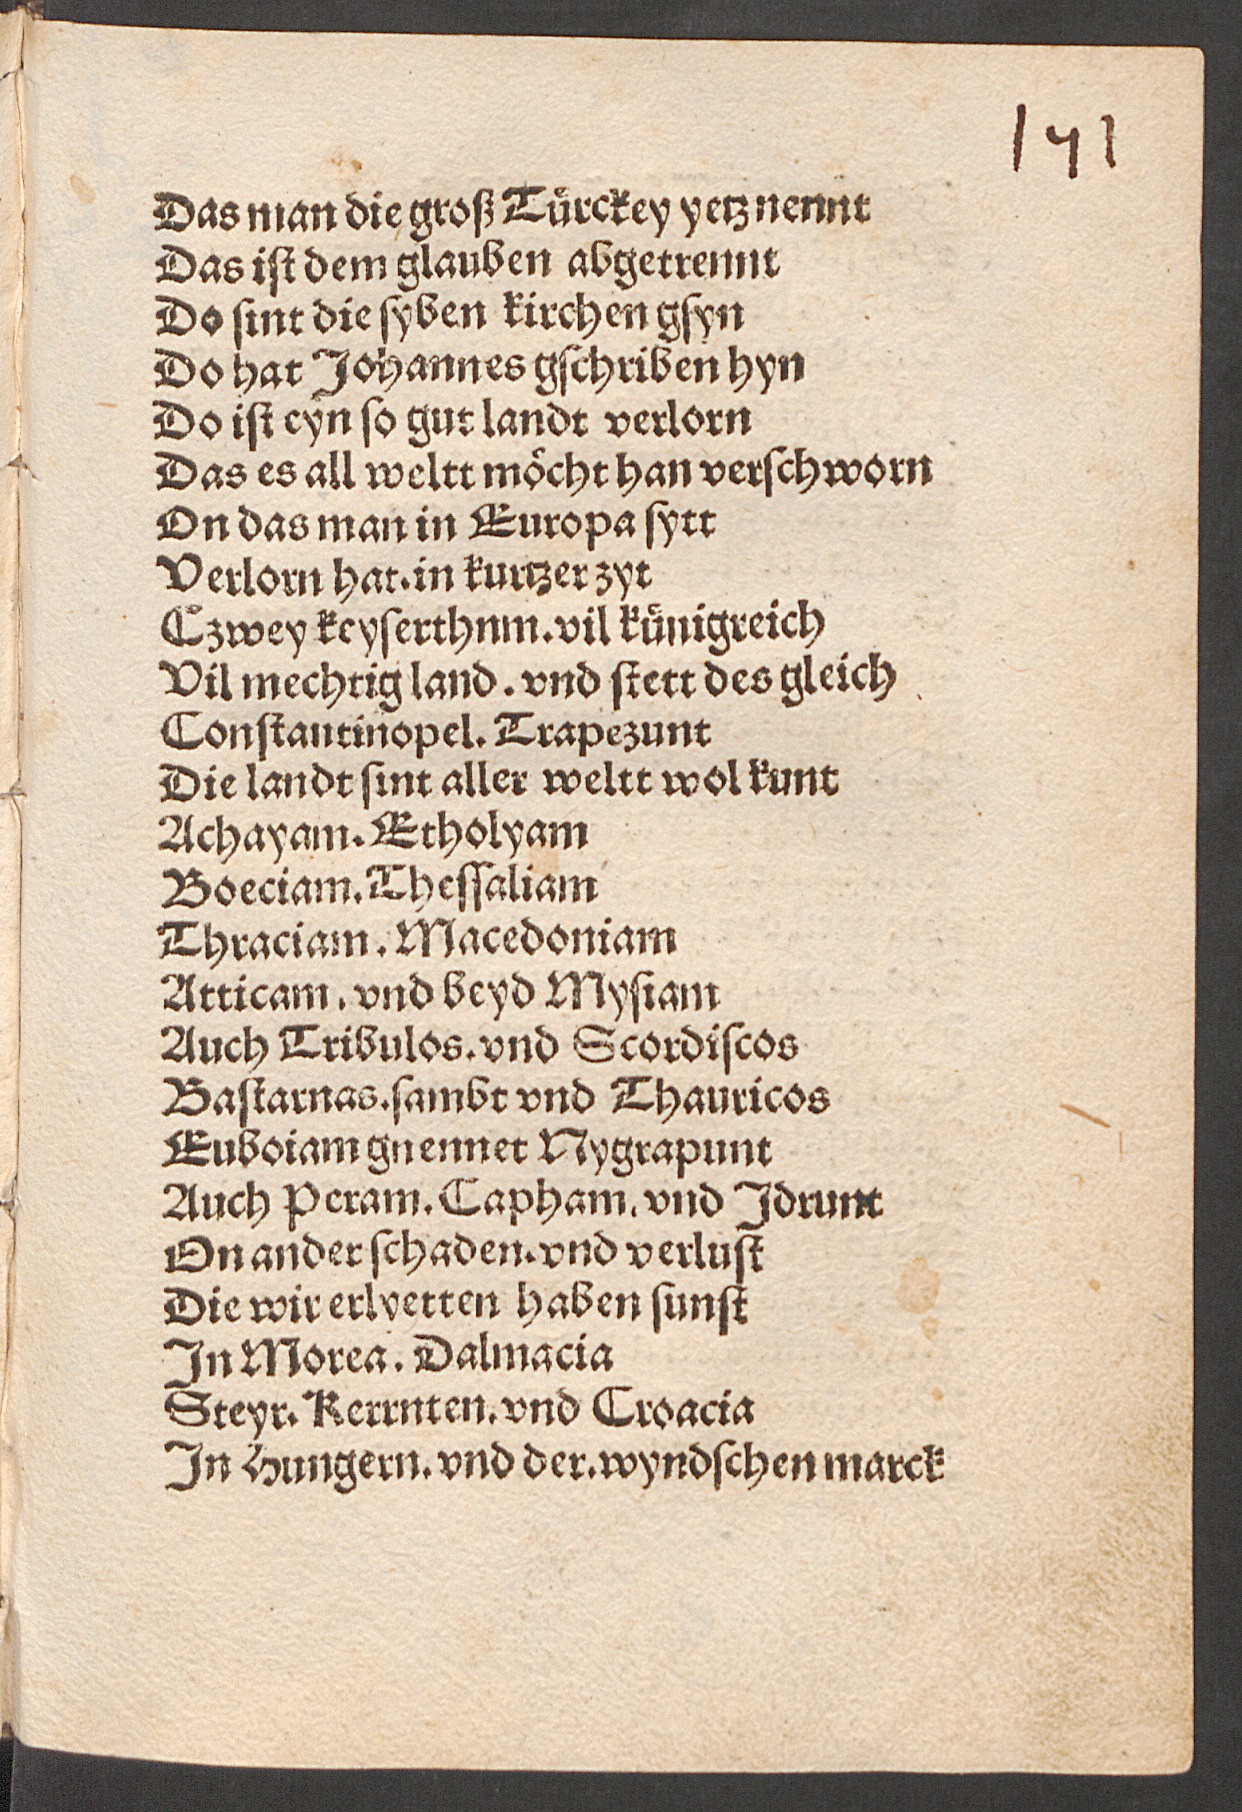 141
Das man die groß Türckey yetz nennt
Das iſt dem glauben abgetrennt
Do ſint die ſyben kirchen gſyn
Do hat Johannes gſchriben hyn
Do iſt eyn ſo gut landt verlorn
Das es all weltt möcht han verſchworn
On das man in Europa ſytt
Verlorn hat. in kurtzer zyt
Czwey keyſerthnm. vil künigreich
Vil mechtig land. vnd ſtett des gleich
Conſtantinopel. Trapezunt
Die landt ſint aller weltt wol kunt
Achayam. Etholyam
Boeciam. Theſſaliam
Thraciam. Macedoniam
Atticam. vnd beyd Myſiam
Auch Tribulos. vnd Scordiſcos
Baſtarnas. ſambt vnd Thauricos
Euboiam gnennet Nygrapunt
Auch Peram. Capham. vnd Jdrunt
On ander ſchaden. vnd verluſt
Die wir erlvetten haben ſunſt
Jn Morea. Dalmacia
Steyr. Kerrnten. vnd Croacia
Jn Hungern. vnd der. wyndſchen marck